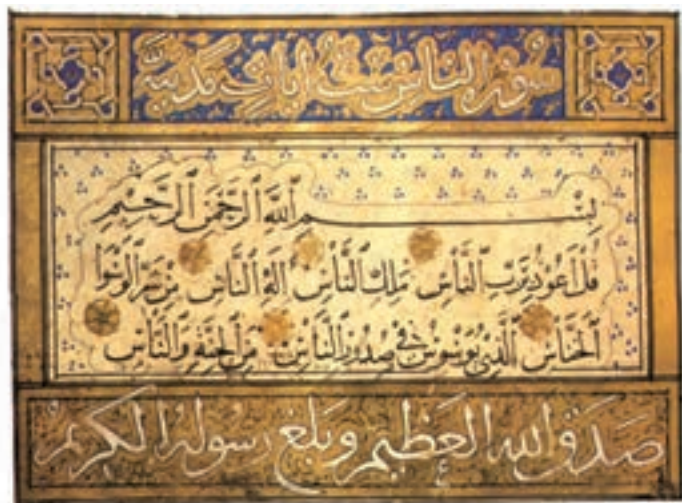 سورة الناس ست ايات مدنية
بِسْمِ ٱللَّهِ ٱلرَّحْمَٰنِ ٱلرَّحِيمِ
قُلْ أَعُوذُ بِرَبِّ ٱلنَّاسِ مَلِكِ ٱلنَّاسِ إِلَٰهِ ٱلنَّاسِ مِنْ شَرِّ ٱلْوَسْوَاسِ
ٱلْخَنَّاسِ ٱلَّذِي يُوَسْوِسُ فِي صُدُورِ ٱلنَّاسِ مِنَ ٱلْجِنَّةِ وَٱلنَّاسِ
صَدَقَ الله العَظِيمُ وبَلَّغَ رسوله الكَرِيمُ